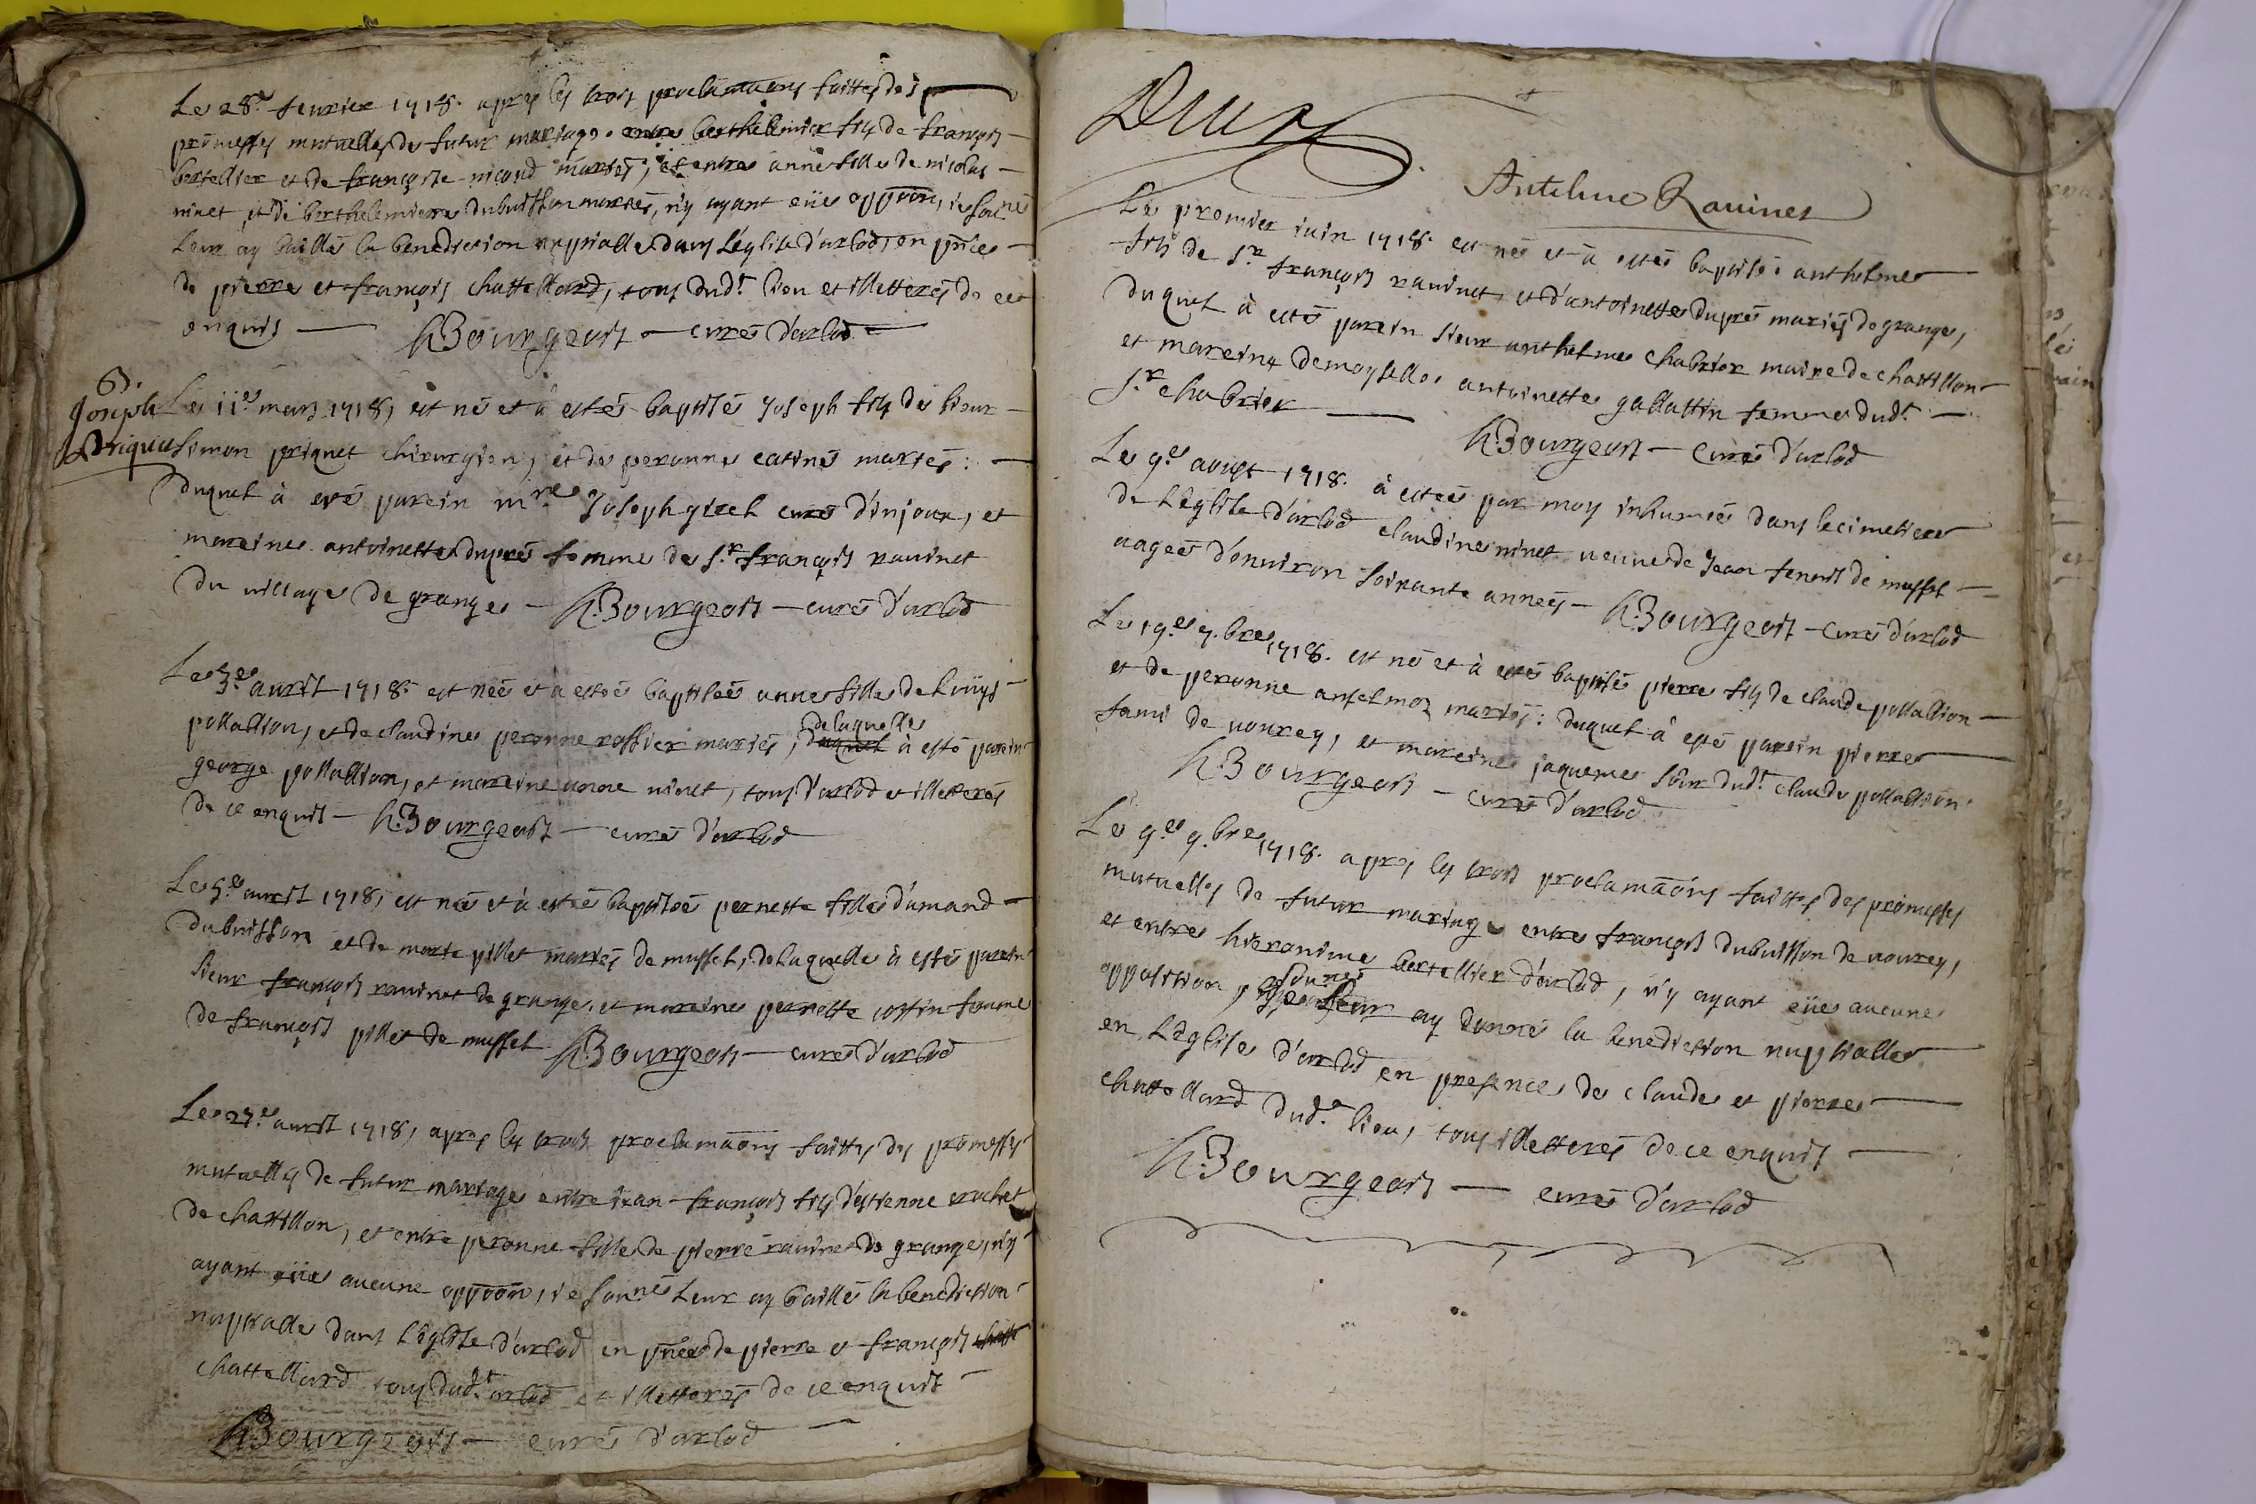 Le 28.e feurier 1718. apres les trois proclamaons faittes des
promesses mutuelles de futur mariage entre berthelemier fils de françois
bertellier et de françoise nicoud mariés, et entre anne fille de nicolas
ninet, et de berthelemiere dubuisson mariés, n'y ayant eüe oppoon, ie sou.né
Leur ay baillé la benediction nuptialle dans L'église d'arlod, en pñce
de pierre et françois chattellard, tous dud.t lieu et illetterés de ce
enquis
Bourgeois curé d'arlod
B.
Joseph
Priquet
Le 11.e mars 1718, est né et à esté baptisé Joseph fils de sieur
Simon priquet chirurgien, et de peronne catiné mariés:
duquel à eté parein m.re Joseph girel curé d'injoux, et
mareine antoinette dupré femme de s.r françois rauinet
du village de grange Bourgeois curé d'arlod
Le 3.e auril 1718. est neé et a esteé baptiseé anne fille de Luÿs
pollallion, et de claudine peronne rossier mariés, duquel à esté parein
delaquelle
george pollallion, et mareine anne ninet, tous d'arlod et illetterés
de ce enquis Bourgeois curé d'arlod
Le 5.e auril 1718, est neé et à esteé baptiseé pernette fille d'amand
dubuisson et de marie pillet mariés de mussel, de laquelle à esté parein
sieur françois rauinet de grange, et mareine pernette femme
de françois pillet de mussel Bourgeois curé d'arlod
Le 27.e auril 1718, apres les trois proclamaons faittes des promesses
mutuelles de futur mariage entre iean françois fils d'estienne crochet
de chatillon, et entre peronne fille de pierre rauinet de grange, n'y
ayant eüe aucune oppoon, ie sou.né Leur ay baillé la benediction
nuptialle dans L'église d'arlod en pñce de pierre et françois chatt
chattellard tous dud.t arlod et illetterés de ce enquis
Bourgeois curé d'arlod
Antelme Rauinet
Le premier iuin 1718. est né et à esté baptisé anthelme
fils de s.r françois rauinet, et d'antoinette dupré mariés de grange,
duquel à esté parein sieur anthelme chabrier maire de chatillon
et mareine demoyselle antoinette gallattin femme dud.t
s.r chabrier Bourgeois curé d'arlod
Le 9.e aoust 1718. à esteé par moy inhumeé dans le cimetiere
de L'église d'arlod claudine ninet veuue de Jean fenouil de mussel
aageé d'enuiron soixante anneés Bourgeois curé d'arlod
Le 19.e 7.bre 1718. est né et à esté baptisé pierre fils de claude pollallion
et de peronne anselmoz mariés: duquel à esté parein pierre
fami de vourey, et mareine jaqueme sœur dud.t claude pollallion
Bourgeois curé d'arlod
Le 9.e 9.bre 1718. apres les trois proclamaons faittes des promesses
mutuelles de futur mariage entre françois dubuisson de vourey,
et entre hieronime bertellier d'arlod, n'y ayant eüe aucune
sou.né
opposition, ie Leur ay donné la benediction nuptialle
en L'église d'arlod en presence de claude et pierre
chattellard dud.t lieu, tous illetterés de ce enquis
Bourgeois curé d'arlod